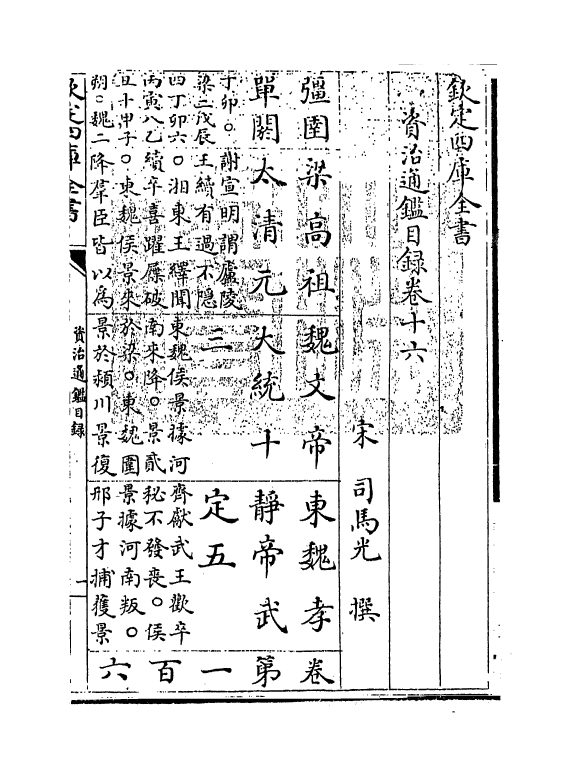 欽定四庫全書
資治通鑑目録卷十六
宋 司馬光 撰
彊圉 梁高祖 魏文帝 東魏孝 卷
單閼 太清元 大統十 靜帝武 第
子卯○謝宣明謂廬陵
梁二戊辰王續有過不隱 三 定五 一
四丁卯六○湘東王繹聞 東魏侯景據河 齊獻武王歡卒
丙寅八乙續卒喜躍屧破 南來降○景貳 秘不發喪○侯 百
丑十甲子○東魏侯景來 於梁○東魏圍 景據河南叛○
朔○魏二降羣臣皆以爲 景於潁川景復 邢子才捕獲景 六
欽定四庫全書
資治通鑑目録
一